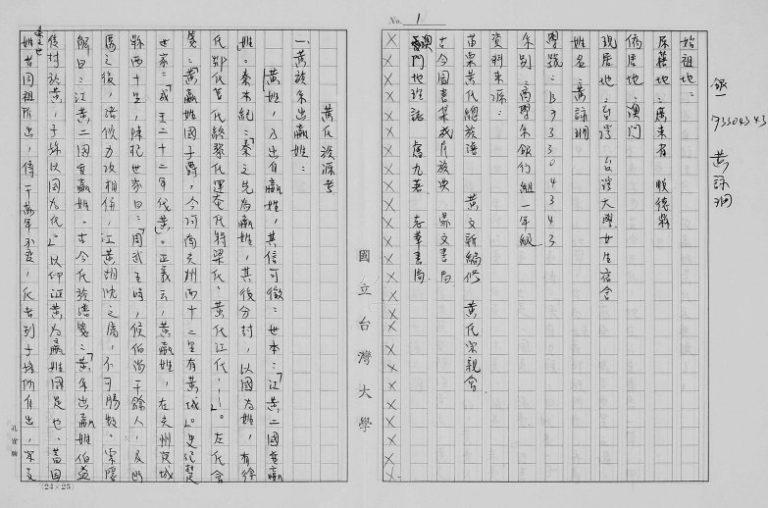 銀一 73304343 黃詠瑚
No. 1
始祖地：
原籍地：廣東省 順德縣
僑居地：澳門
現居地：台灣 台灣大學女生宿舍
姓名：黃詠瑚
學號：B73304343
系別：商學系銀行組一年級
資料來源：
苗栗黃氏總族譜 黃文新編修 黃氏宗親會
古今圖書集成氏族典 鼎文書局
澳門地理誌 唐九著 志華書局
國立台灣大學
黃氏族源考
一、黃族系出嬴姓：
黃姓，乃出自嬴姓，其信可徵：世本：「江黃二國並嬴
姓。秦本紀：「秦之先為嬴姓，其後分封，以國為姓，有徐
氏郯氏莒氏終黎氏運奄氏將梁氏、黃氏江氏……」。左氏會
箋：「黃嬴姓國子爵，今河南光州西十二里有黃城」。史記楚
世家：「成王二十二年伐黃。正義云，黃嬴姓，在光州定城
縣西十里，陳杞世家曰：「周武王時，侯伯尚千餘人，及幽
厲之後，諸侯力攻相併，江黃胡沈之屬，不可勝數。索隱
解曰：江黃二國並嬴姓。古今氏族
後封於黃，子孫以國為氏」。以印証黃為嬴姓國是也。
姓者同祖所出，傳千萬年不差，氏者別子孫所自出，
(24×25)